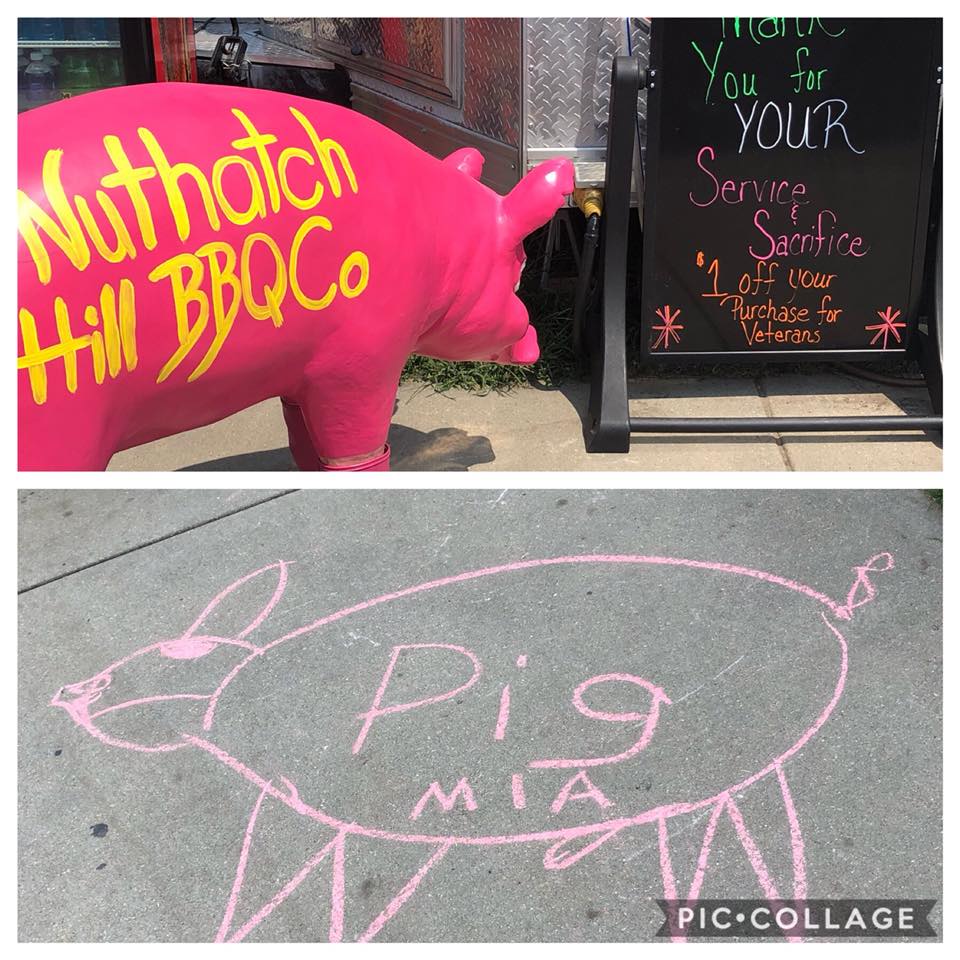 Nuthatch
Hill BBQ Co
Thank
You for
YOUR
Service
&
Sacrifice
$1 off your
Purchase for
Veterans
Pig
MIA
PIC•COLLAGE